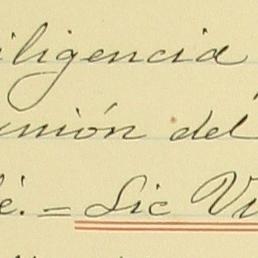 iligencia
unión del
é. = Lic Vi